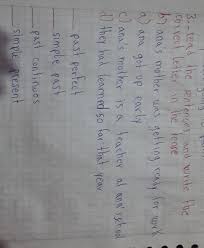 3- read the sentences and write the
correct letter in the
b) ana's mother was getting ready for work
a) ana got up early
c) ana's mother is a teacher at ana' school
d) they had learned so far that year
___ past perfect
___ simple past
___ past continuos
___ simple present